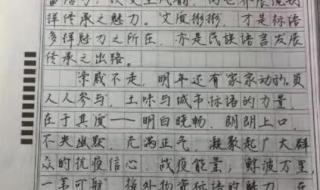 样传承之魅力。文度彬彬，才是标语
多样魅力之所在，亦是民族语言发展
传承之出路。
不走，明年还有家家动的员
人人参与，土味与城市标语的力量，
在于其度——明白晓畅、朗朗上口，
不失幽默、充满正气，凝聚起广大群
众的抗疫信心、战疫能量，鲜波万里，
一苇可航，